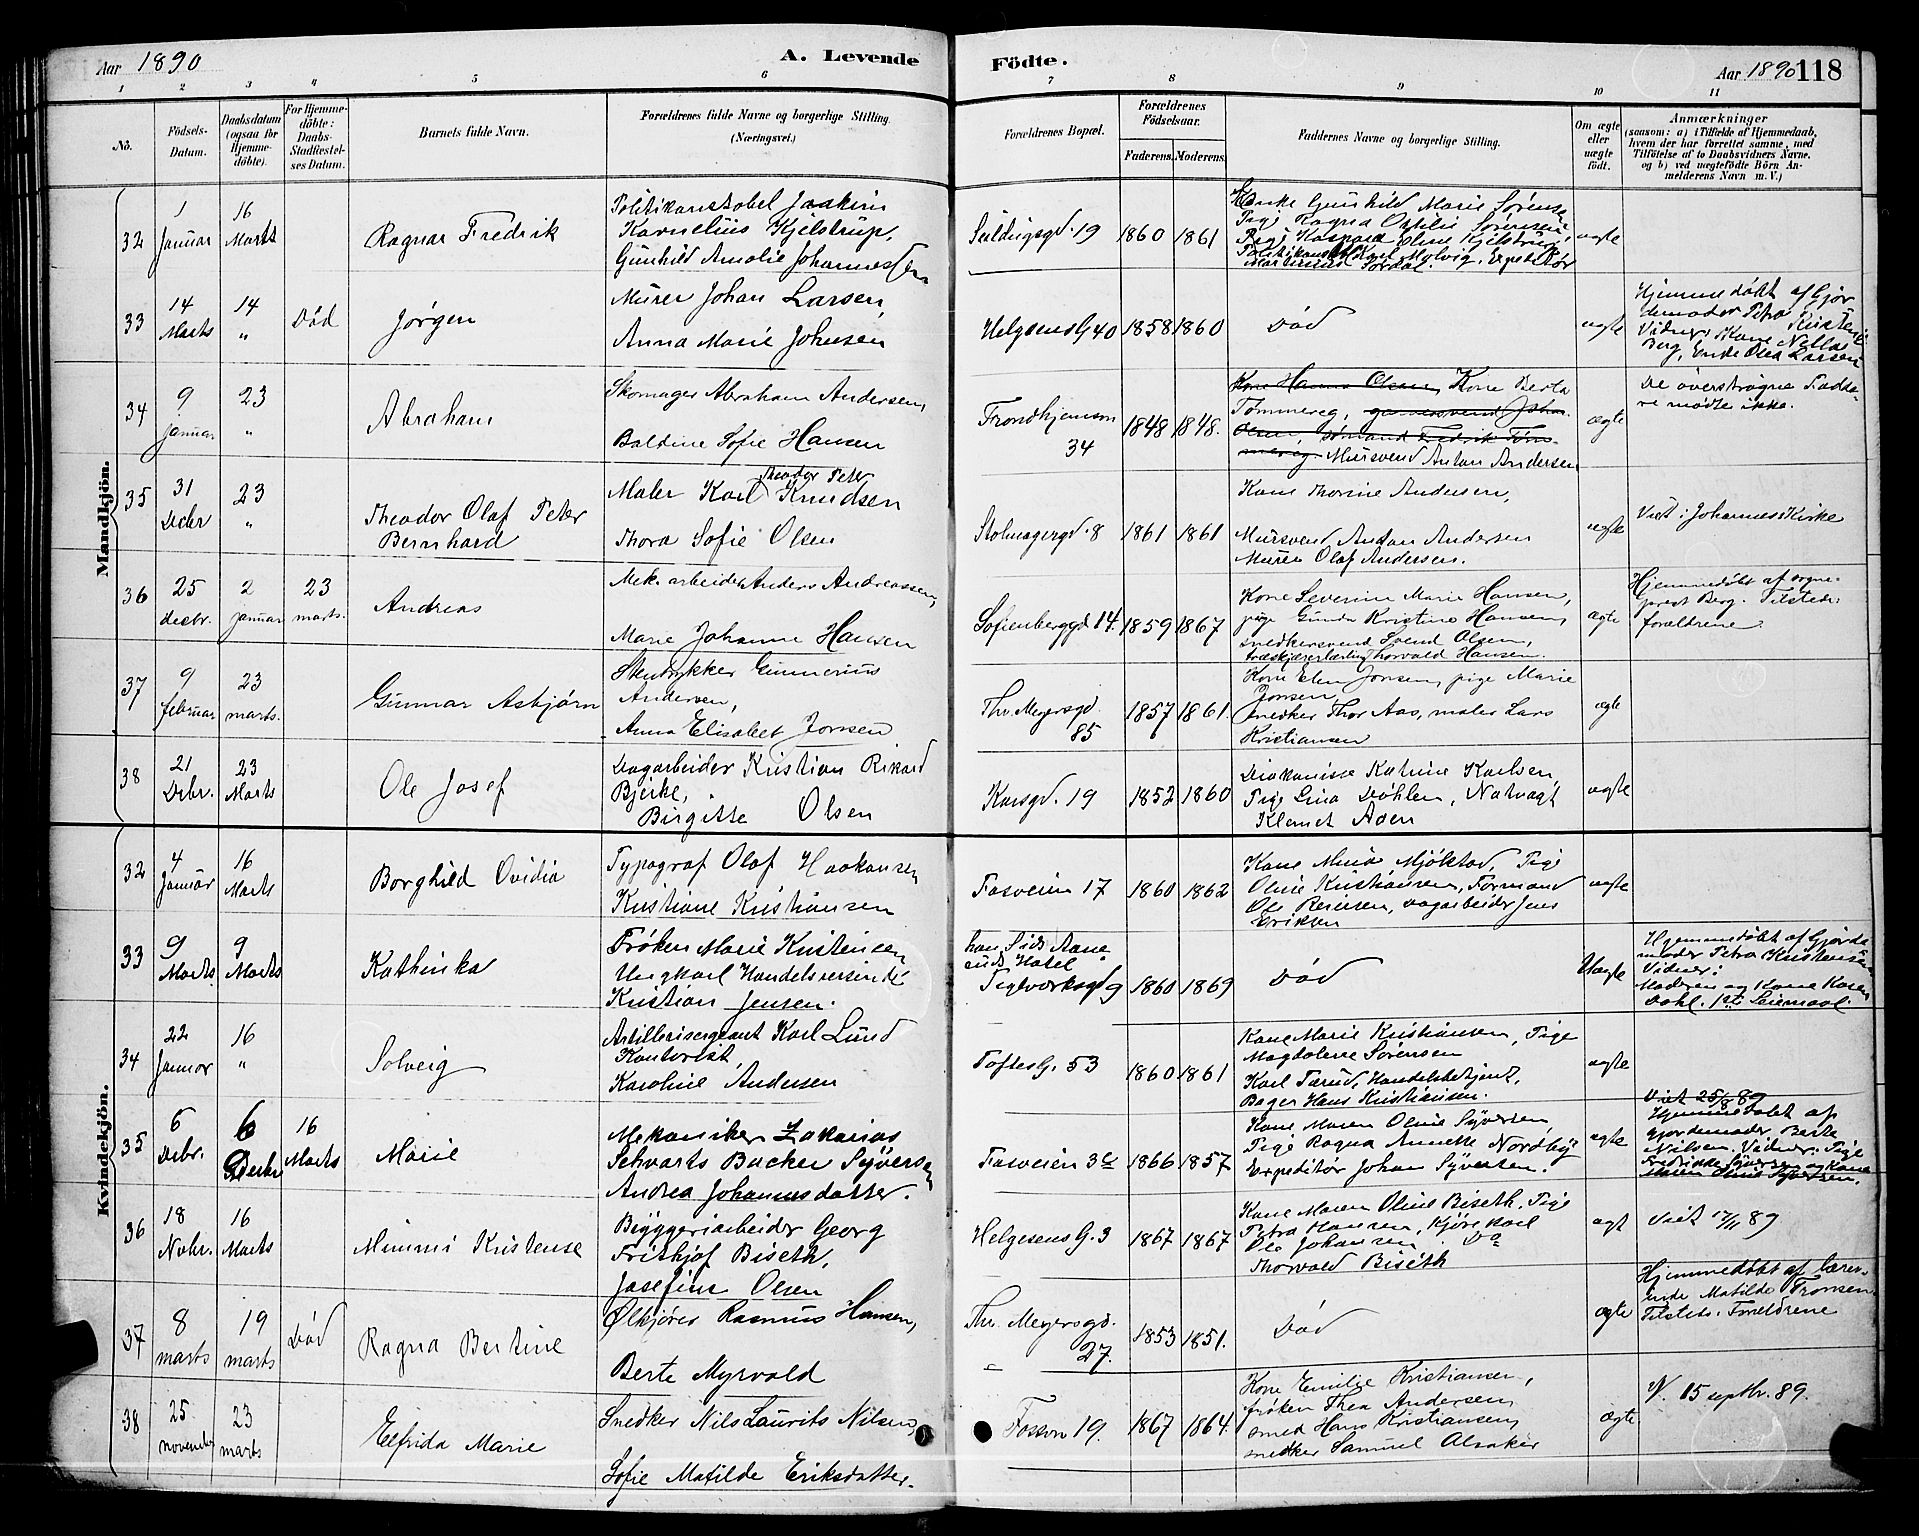 Aar 1890
A. Levende Födte.
Aar 1890 118
1 2 3 4 5 6 7 8 9 10 11
No.
Födsels-
Datum.
Daabsdatum
(ogsaa for
Hjemme-
döbte).
For Hjemme-
döbte:
Daabs-
Stadfæstel-
ses Datum.
Barnets fulde Navn.
Forældrenes fulde Navne og borgerlige Stilling.
(Næringsvei.)
Forældrenes Bopæl.
Forældrenes
Födselsaar.
Faderens. Moderens.
Faddernes Navne og borgerlige Stilling.
Om ægte
eller
uægte
födt.
Anmærkninger
(saasom: a) i Tilfælde af Hjemmedaab,
hvem der har forrettet samme, med
Tilföielse af to Daabsvidners Navne,
og b) ved uægtefödte Börn An-
melderens Navn m. V.)
Mandkjön.
32
1
Januar
16
Marts
Ragnar Fredrik
Politikonstabel Joakim
Kornelius Kjelstrup,
Gunhild Amalie Johannessen
19
1860
1861
Enke Gunhild Marie Sørensen
Pige Ragna Othilie Sørensen
Pige Oline Kjelstrup
Karl Molvig, Expeditør
Sordal.
ægte
33
14
Marts
14
"
Død
Jørgen
Murer Johan Larsen,
Anna Marie Johnsen
Helgesens G 40
1858
1860
Død
ægte
Hjemmedøbt af Gjor
demoder Petra Kristensen
Vidner: Kone
Berg, Enke Olea Larsen
34
9
januar
23
"
Abraham
Skomager Abraham Andersen,
Baldine Sofie Hansen
Trondhjemsvn
34
1848
1848.
Kone Hanna Olsen, Kone Berta
Tømmereg, John
Olsen, Sømand Fredrik Tøm-
mereg. Mursvend Anton Andersen
ægte
De överströgne Fadde-
re mødte ikke.
35
31
Decbr
23
"
Theodor Olaf Peter
Bernhard
Theodor Peter
Maler Karl Knudsen
Thora Sofie Olsen
Stolmagergd. 8
1861
1861
Kone Thorine Andersen,
Mursvend Anton Andersen
Murer Olaf Andersen.
ægte
Viet i Johannes Kirke
36
25
decbr.
2
januar
23
marts.
Andreas
Mek. arbeider Anders Andreassen,
Marie Johanne Hansen
Sofienberggd 14.
1859
1867
Kone Severine Marie Hansen,
pige Gunda Kristine Hansen,
snedkersvend Svend Olsen,
træskjærerlærling Thorvald Hansen.
ægte
Hjemmedøbt af sogne-
prest Berg. Tilstede:
forældrene
37
9
februar
23
marts.
Gunnar Asbjørn
Stentrykker Gunnerius
Andersen,
Anna Elisabet Jonsen
Thv. Meyersgd.
85
1857
1861.
Kone Elen Jonsen, pige Marie
Jonsen
snedker Thor Aas, maler Lars
Kristiansen
ægte
38
21
Debr.
23
Marts
Ole Josef
Dagarbeider Kristian Rikard
Bjerke,
Birgitte Olsen
Korsgd. 19
1852
1860
Diakonisse Katrine Karlsen,
Pige Lina Døhlen, Natvagt
Klemet Aaen
ægte
Kvindekjön.
32
4
Januar
16
Marts
Borghild Ovidia
Typograf Olaf Haakonsen
Kristiane Kristiansen
Fosveien 17
1860
1862
Kone Mjøktad, Pige
Oline Kristiansen, Formand
Ole Berntsen, Dagarbeider Jens
Eriksen
ægte
33
9
Marts.
9
Marts
Kathinka
Frøken Marie Kristensen
Ungkarl Handelsreisende
Kristian Jensen.
han
Hotel
Teglværksgd 9
1860
1869
Død
Uægte
Hjemmedøbt af Gjorde
moder Petra Kristensen
Vidner:
Moderen og Kone Karen
Dahl. 1ste Leiemaal.
34
22
Januar
16
"
Solveig
Artillerisergeant Karl Lund
Kontorist,
Karoline Andersen
Toftes G. 53
1860
1861
Kone Marie Kristiansen, Pige
Magdalene Sørensen
Karl Tarud, Handelsbetjent,
Bager Hans Kristiansen.
ægte
35
6
Debr.
6
Decbr
16
Marts
Marie
Mekaniker Zakarias
Schvarts Backer Syversen
Andrea Johannesdatter.
Fosveien 3c
1866
1857
Kone Maren Oline Syversen,
Pige Ragna Annette Nordby
Expeditør Johan Syversen.
ægte
Viet 25/8 89
Hjemmedøbt af
gjordemoder Berte
Nilsen. Vidner: Pige
Fredrikke Syversen og Kone
Maren Oline Syversen.
36
18
Nvbr.
16
Marts
Mimmi Kristense
Bryggeriarbeider Georg
Frithjof Biseth,
Josefine Olsen
Helgesens G. 3
1867
1867
Kone Maren Oline Biseth, Pige
Petra Hansen, Kjørekarl
Ole Johansen Do
Thorvald Biseth
ægt
Viet 17/11 89
37
8
marts
19
marts
Død
Ragna Bertine
Ølkjører Rasmus Hansen,
Berte Myrvold
Thv. Meyersgd.
27.
1853
1851.
Død
ægte
Hjemmedøbt af lærer-
inde Matilde Fronsen
Tilstede: Forældrene
38
25
november
23
marts
Elfrida Marie
Snedker Nils Laurits Nilsen,
Sofie Matilde Eriksdatter.
Fossvn 19.
1867
1864.
Kone Emilie Kristiansen,
frøken Thea Andersen,
smed Hans Kristiansen,
snedker Samuel Alsaker
ægte
V. 15 septbr. 89.